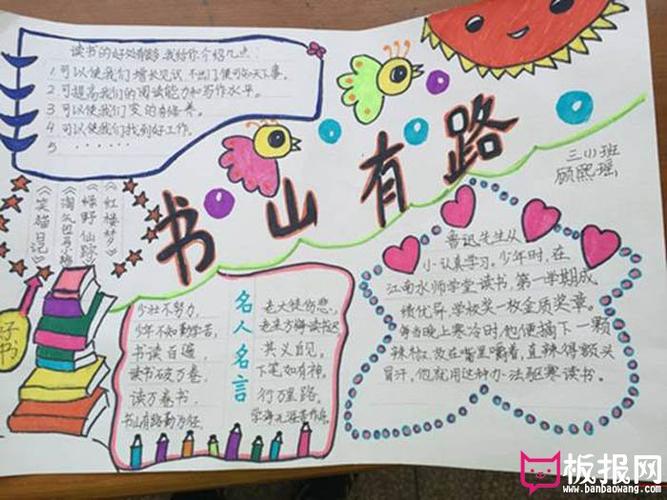 读书的好处有很多 我给你介绍几点:
1.可以使我们增长见识 不出门便可知天下事。
2.可提高我们的阅读能力和写作水平。
3.可以使我们变的有修养。
4.可以使我们找到好工作。
5 ......
书山有路
顾熙瑶
《红楼梦》
《绿野仙踪》
《淘气包马小跳》
《笑猫日记》
好书
名人名言
少壮不努力,
老大徒伤悲,
少年不知勤学苦,
老来方悔读书迟
书读百遍,
其义自见,
读书破万卷,
下笔如有神,
读万卷书,
行万里路,
书山有路勤为径,
学海无涯苦作舟
鲁迅先生从
小认真学习。少年时,在
江南水师学堂读书,第一学期成
绩优异,学校奖一枚金质奖章。
每当晚上寒冷时,他便摘下一颗
辣椒,放在嘴里嚼着,直辣得额头
冒汗。他就用这种办法驱寒读书。
板报网
www.banbaowang.com